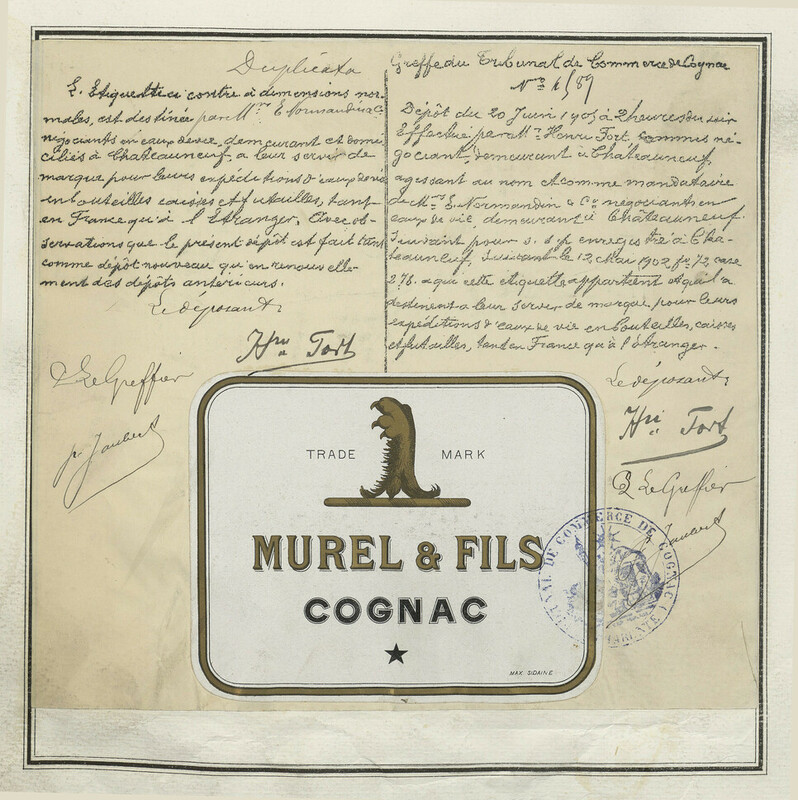 Duplicata
L'Etiquette ci contre à dimensions nor-
males, est destinée par Mrs E. Normandin & Co
négociants en eaux de vie, demeurant et domi-
ciliés à Châteauneuf, à leur servir de
marque pour leurs expéditions d'eaux de vie
en bouteilles caisses et futailles, tant
en France qu'à l'Etranger. Avec ob-
servations que le présent dépôt est fait tant
comme dépôt nouveau qu'en renouvelle-
ment des dépôts antérieurs.
Le déposant:
Hri Fort
Le Greffier
p. Jaubert
Greffe du Tribunal de Commerce de Cognac
Dépôt du 20 Juin 1905 à 2 heures du soir
Effectué par Mr Henri Fort, commis né-
gociant, demeurant à Châteauneuf,
agissant au nom et comme mandataire
de Mrs E. Normandin & Co négociants en
eaux de vie, demeurant à Châteauneuf.
Suivant pouvoir s. s. p. enregistré à Cha-
teauneuf, suivant le 12 Mai 1902 fo 72, case
276. & que cette étiquette appartient et qu'il a
destinent à leur servir de marque pour leurs
expéditions d'eaux de vie en bouteilles, caisses
et futailles, tant en France qu'à l'étranger.
Le déposant:
Hri Fort
Le Greffier
p. Jaubert
TRIBUNAL DE COMMERCE DE COGNAC (CHARENTE)
TRADE MARK
MUREL & FILS
COGNAC
MAX SIDAINE